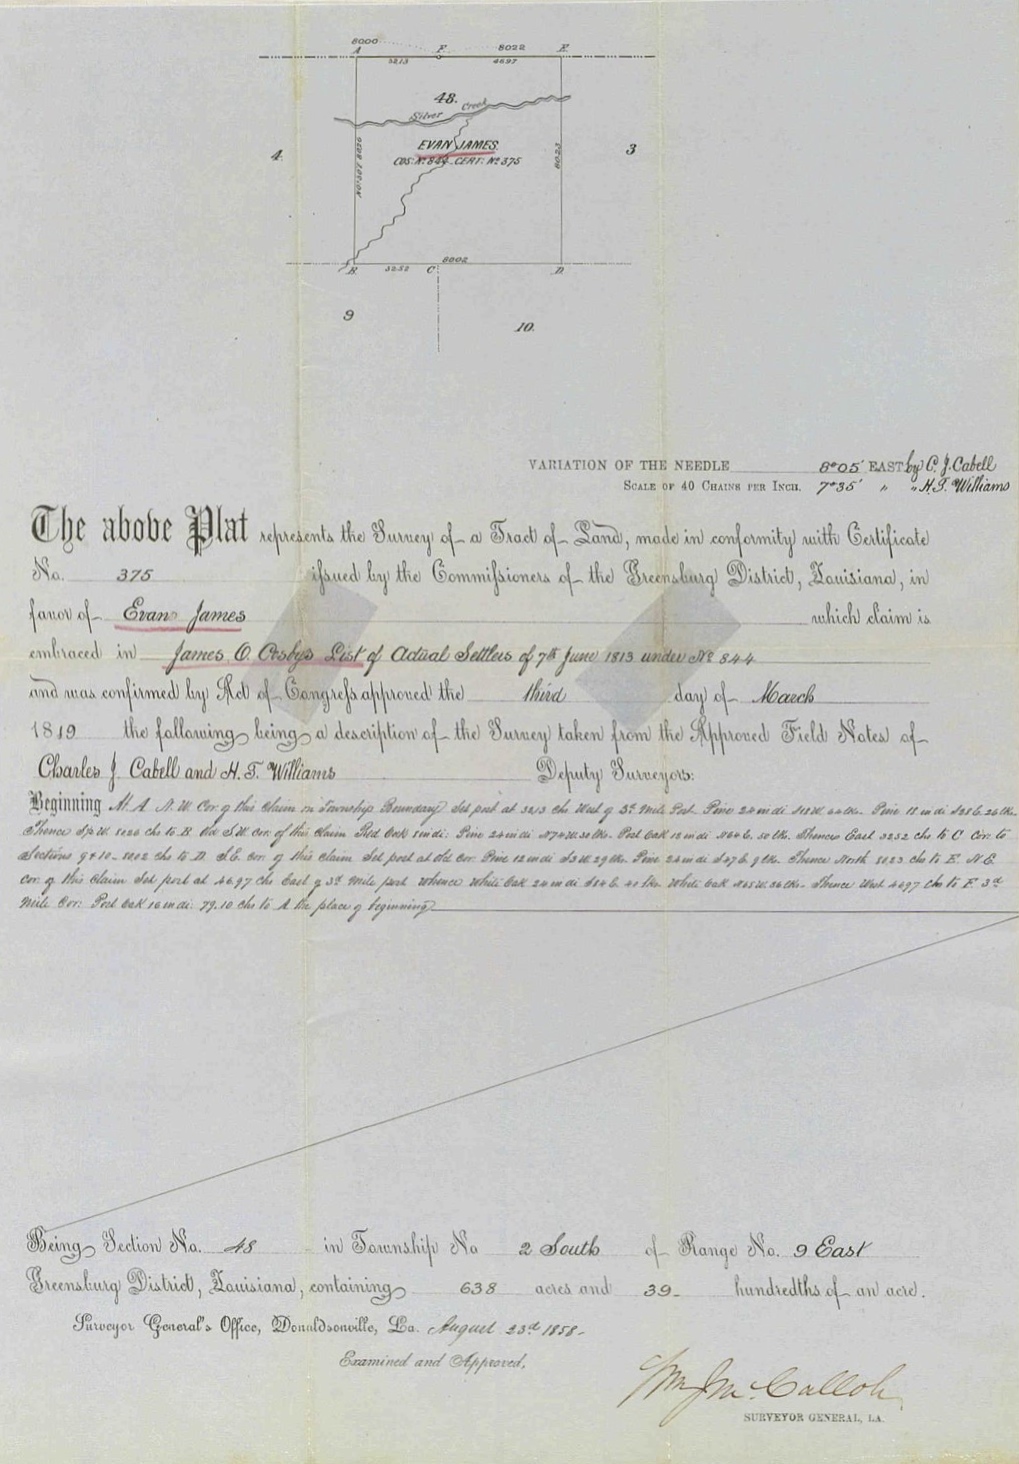 8000
A F 8022 E
3213 4697
48.
Silver Creek
EVAN JAMES.
COS: No. 844. CERT: No. 375
4. 3
8023
B 3252 C 8002 D
9
10.
VARIATION OF THE NEEDLE 8°05' EAST by C. J. Cabell
SCALE OF 40 CHAINS PER INCH. 7°35' " " H. T. Williams
The above Plat represents the Survey of a Tract of Land, made in conformity with Certificate
No. 375 issued by the Commissioners of the Greensburg District, Louisiana, in
favor of Evan James which claim is
embraced in James O. Cosby's List of Actual Settlers of 7th June 1813 under No. 844
and was confirmed by Act of Congress approved the third day of March
1819 the following being a description of the Survey taken from the Approved Field Notes of
Charles J. Cabell and H. T. Williams Deputy Surveyors:
Beginning At A N.W. Cor. of this Claim on Township Boundary Set post at 3213 chs West of 3d Mile Post. Pine 24 in di Pine 18 in di
Thence 8026 chs to B the S.W. cor. of this claim Red Oak Pine 24 in di N74W. 30 lks. Post Oak 12 in di N64E. 50 lks. Thence East 3252 chs to C Cor. to
Sections 9 & 10 - 8002 chs to D. S.E. cor. of this claim Set post at old cor. Pine 12 in di S3W. 29 lks. Pine 24 in di S47E. 9 lks. Thence North 8023 chs to E. N.E.
cor. of this claim Set post at 46.97 chs East of 3d Mile post whence White Oak 24 in di White Oak Thence West 4697 chs to F. 3d
Mile Cor: Post Oak 16 in di: 79.10 chs to A the place of beginning
Being Section No. 48 in Township No 2 South of Range No. 9 East
Greensburg District, Louisiana, containing 638 acres and 39 hundredths of an acre.
Surveyor General's Office, Donaldsonville, La. August 23d 1858.
Examined and Approved,
Wm J McCulloh
SURVEYOR GENERAL, LA.